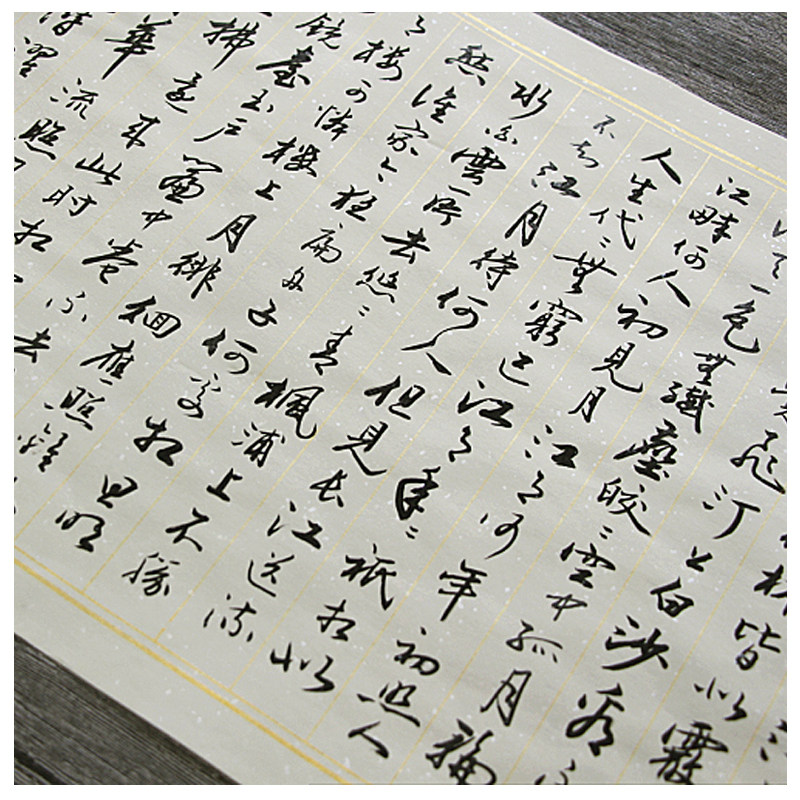 林皆似霰
飛汀上白沙看不
天一色無纖塵皎〻空中孤月輪
江畔何人初見月江月何年初照人
人生代〻無窮已江月年〻祇相似
不知江月待何人但見長江送流
水白雲一片去悠〻青楓浦上不勝
愁誰家今夜扁舟子何處相思明
月樓可憐樓上月徘徊應照離
鏡臺玉戶簾中卷不去
拂還來此時相
華流照